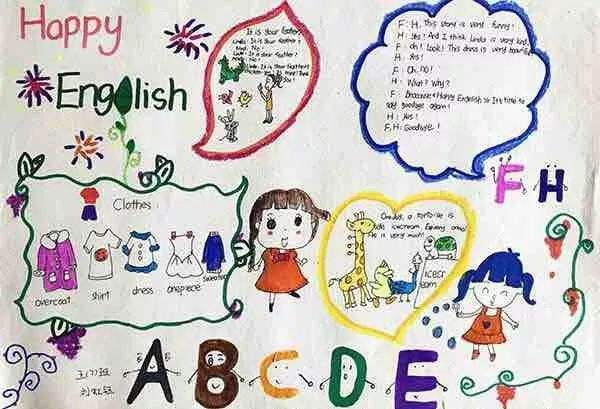 Happy
English
It is your feather
It is your feather!
No!
It is dear feather!
No!
F: H, This story is very funny!
H: Yes! And I think Linda is very kind.
F: oh! Look! This dress is very beautiful
H: Yes!
F: Oh, no!
H: What? Why?
F: Because Happy English so It's time to
say goodbye again!
H: Yes!
F, H: Goodbye!
F H
Clothes:
overcoat
shirt
dress
onepiece
sweater
One day, a tortoise is
icecream
He is very much!
icecr
eam
A B C D E